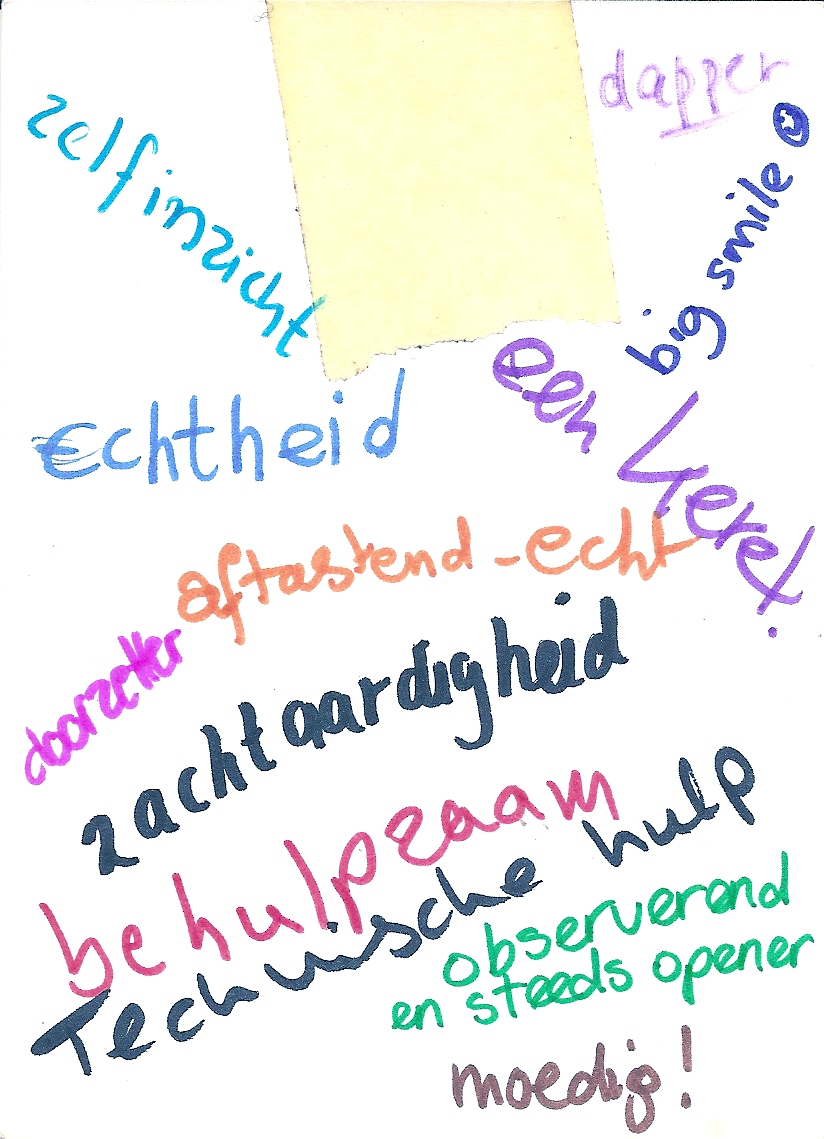 dapper
zelfinzicht
big smile
echtheid
een
aftastend - echt
doorzetter
zachtaardigheid
behulpzaam
Technische hulp
observerend
en steeds opener
moedig!